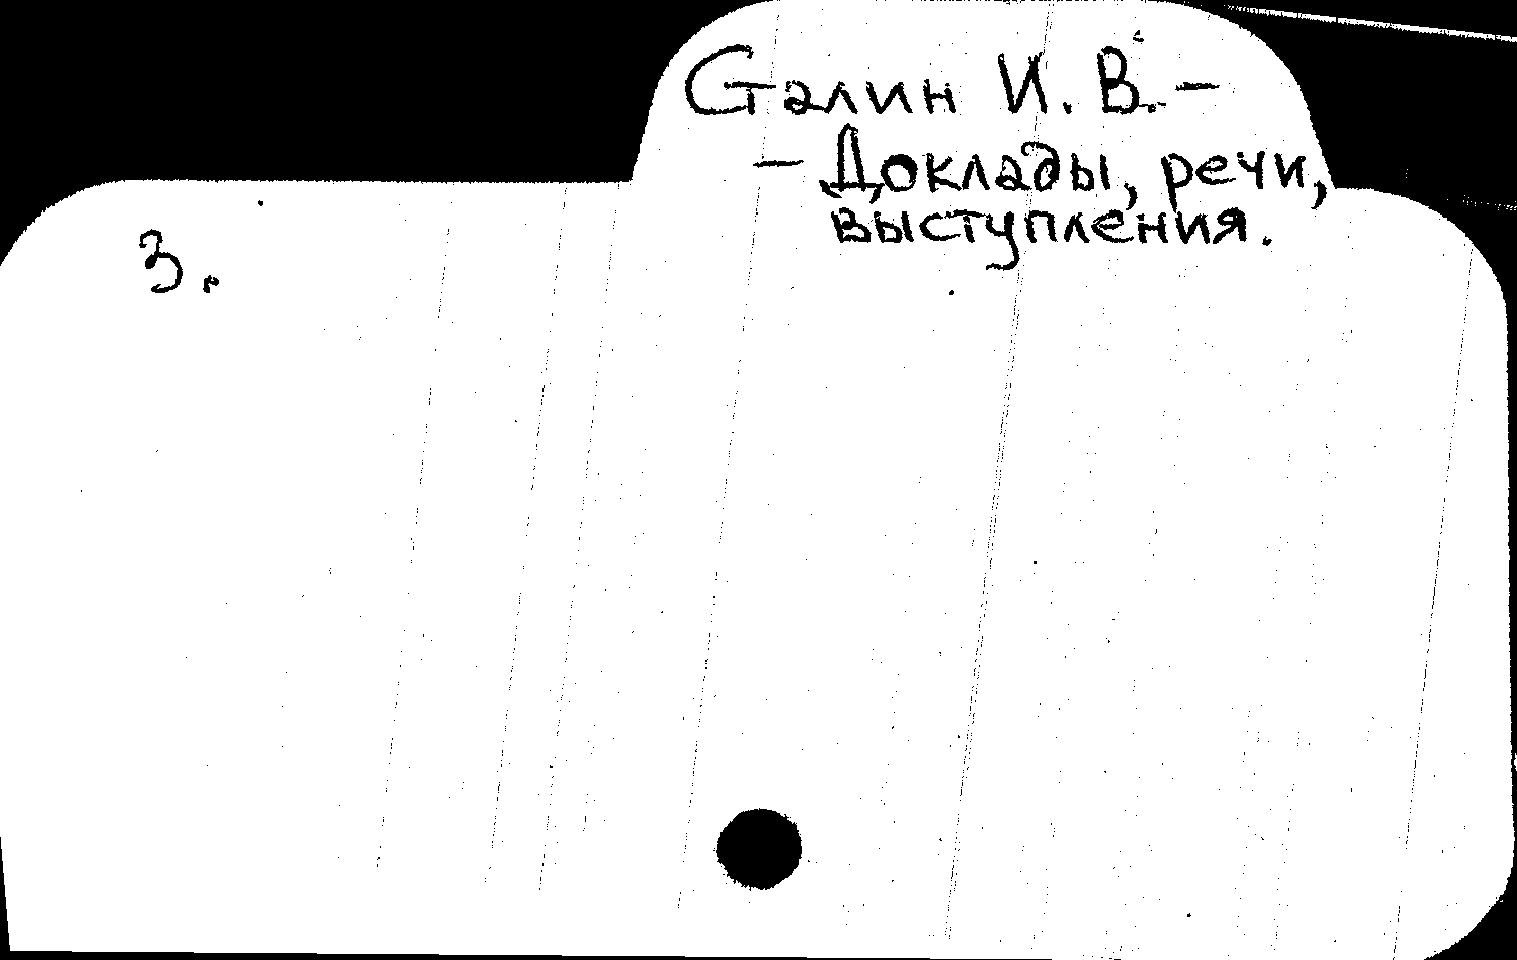 Сталин И. В. –
– Доклады, речи,
выступления.
3.